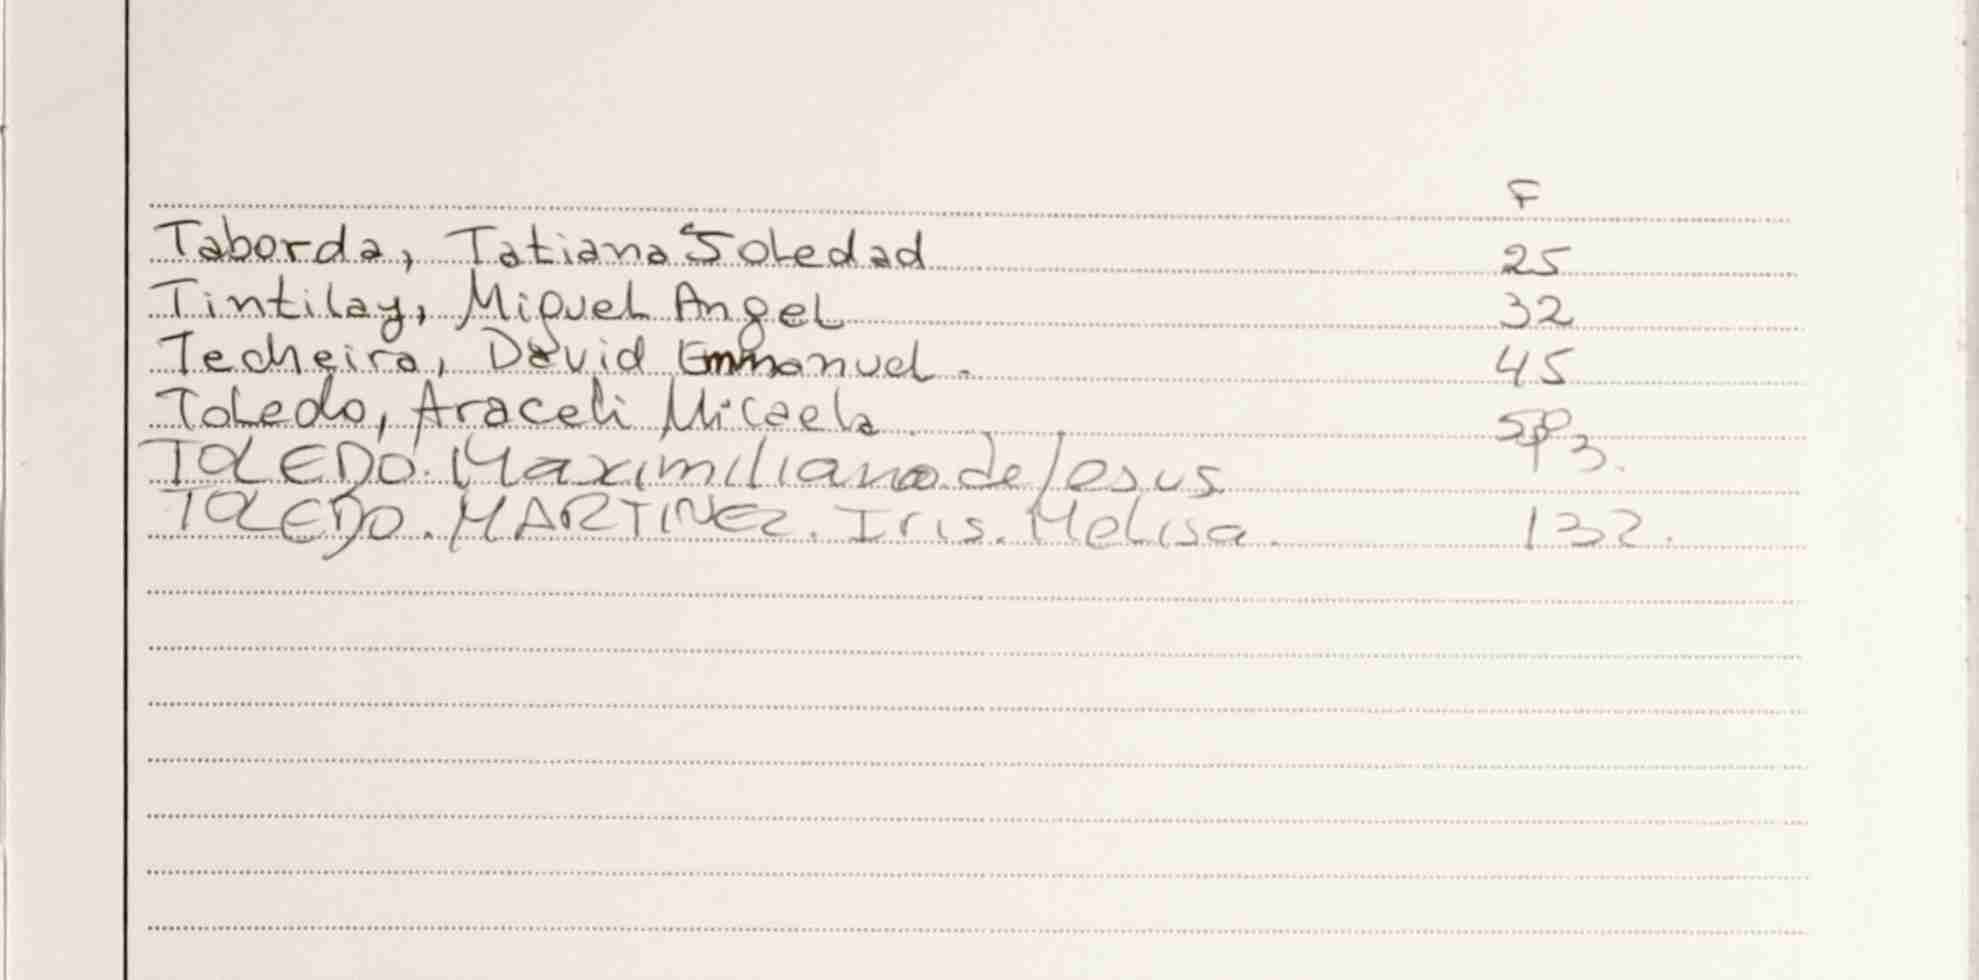 F
Taborda, Tatiana Soledad 25
Tintilay, Miguel Angel 32
Techeira, David Emmanuel. 45
Toledo, Araceli Micaela 50
TOLEDO. Maximiliano de Jesus 93.
TOLEDO. MARTINEZ. Iris. Melisa. 132.